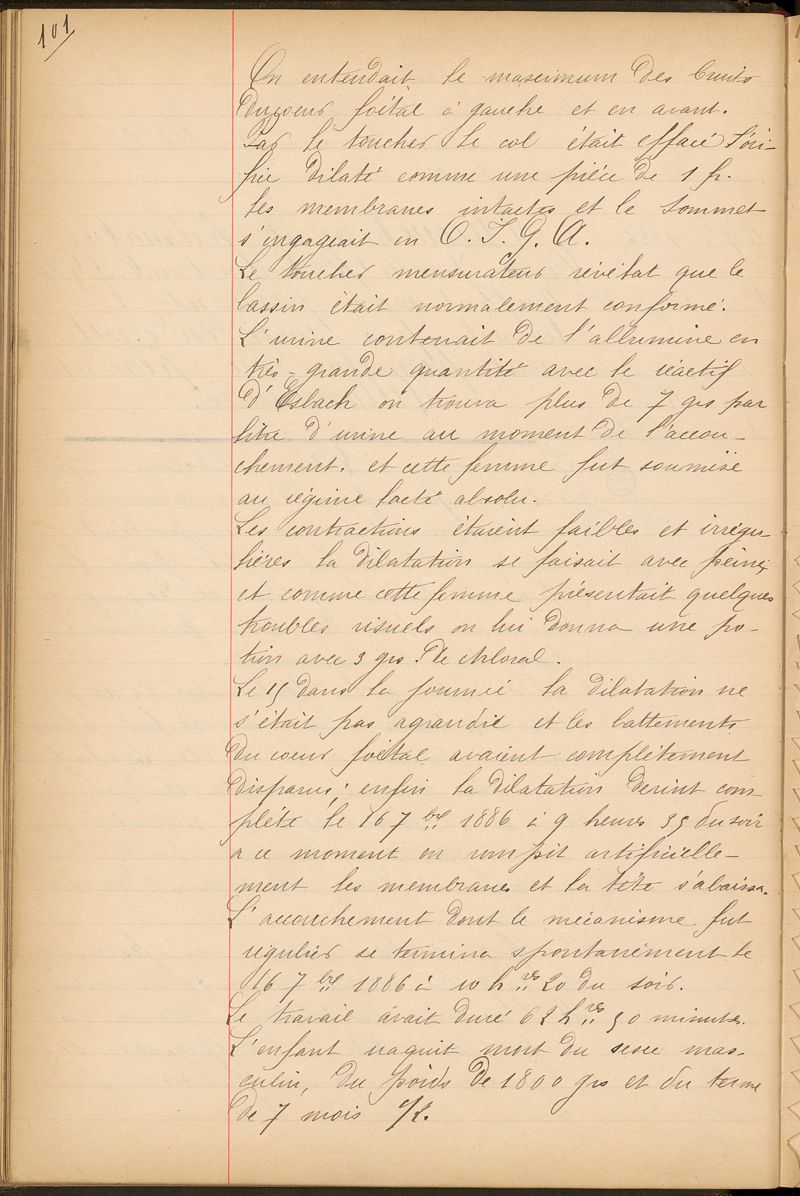 101
On entendait le maximum des bruits
du cœur fœtal à gauche et en avant.
Par le toucher le col était effacé l'ori-
fice dilaté comme une pièce de 1 fr.
les membranes intactes et le sommet
s'engageait en O. I. G. A.
Le toucher mensurateur révélat que le
bassin était normalement conformé.
L'urine contenait de l'albumine en
très-grande quantité avec le réactif
d'Esbach on trouva plus de 7 grs par
litre d'urine au moment de l'accou-
chement. et cette femme fut soumise
au régime lacté absolu.
Les contractions étaient faibles et irrégu-
lières la dilatation se faisait avec peine
et comme cette femme présentait quelques
troubles visuels on lui donna une po-
tion avec 3 grs. de chloral.
Le 15 dans la journée la dilatation ne
s'était pas agrandie et les battements
du cœur fœtal avaient complètement
disparus; enfin la dilatation devint com-
plète le 16 7bre 1886 à 9 heures 35 du soir
à ce moment on rompit artificielle-
ment les membranes et la tête s'abaissa.
L'accouchement dont le mécanisme fut
régulier se termina spontanément le
16 7bre 1886 à 10 hres 20 du soir.
Le travail avait duré 62 hres 50 minutes.
L'enfant naquit mort du sexe mas-
culin, du poids de 1800 grs et du terme
de 7 mois 1/2.